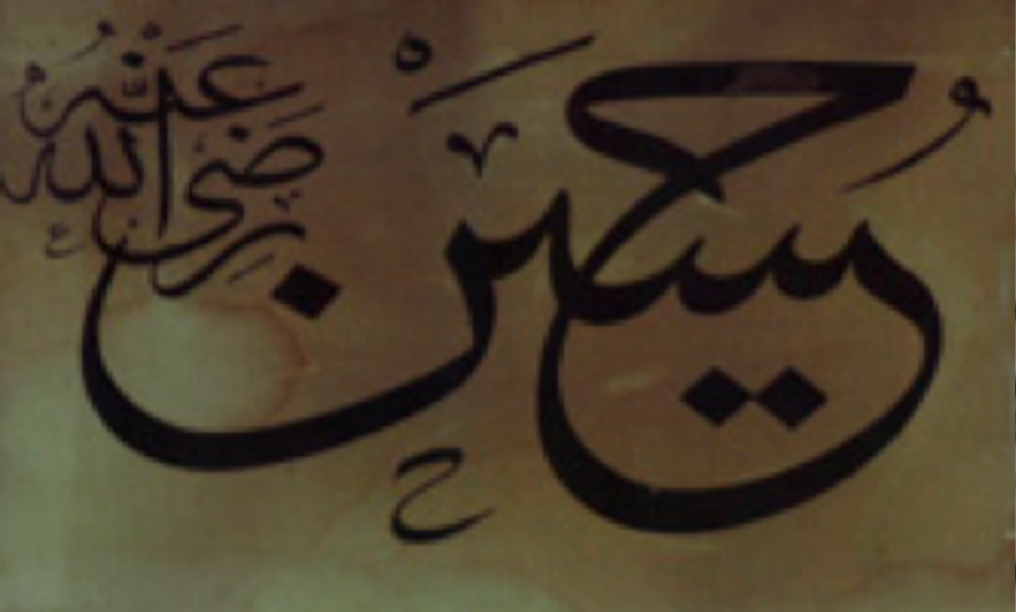 حسين
رضي الله عنه